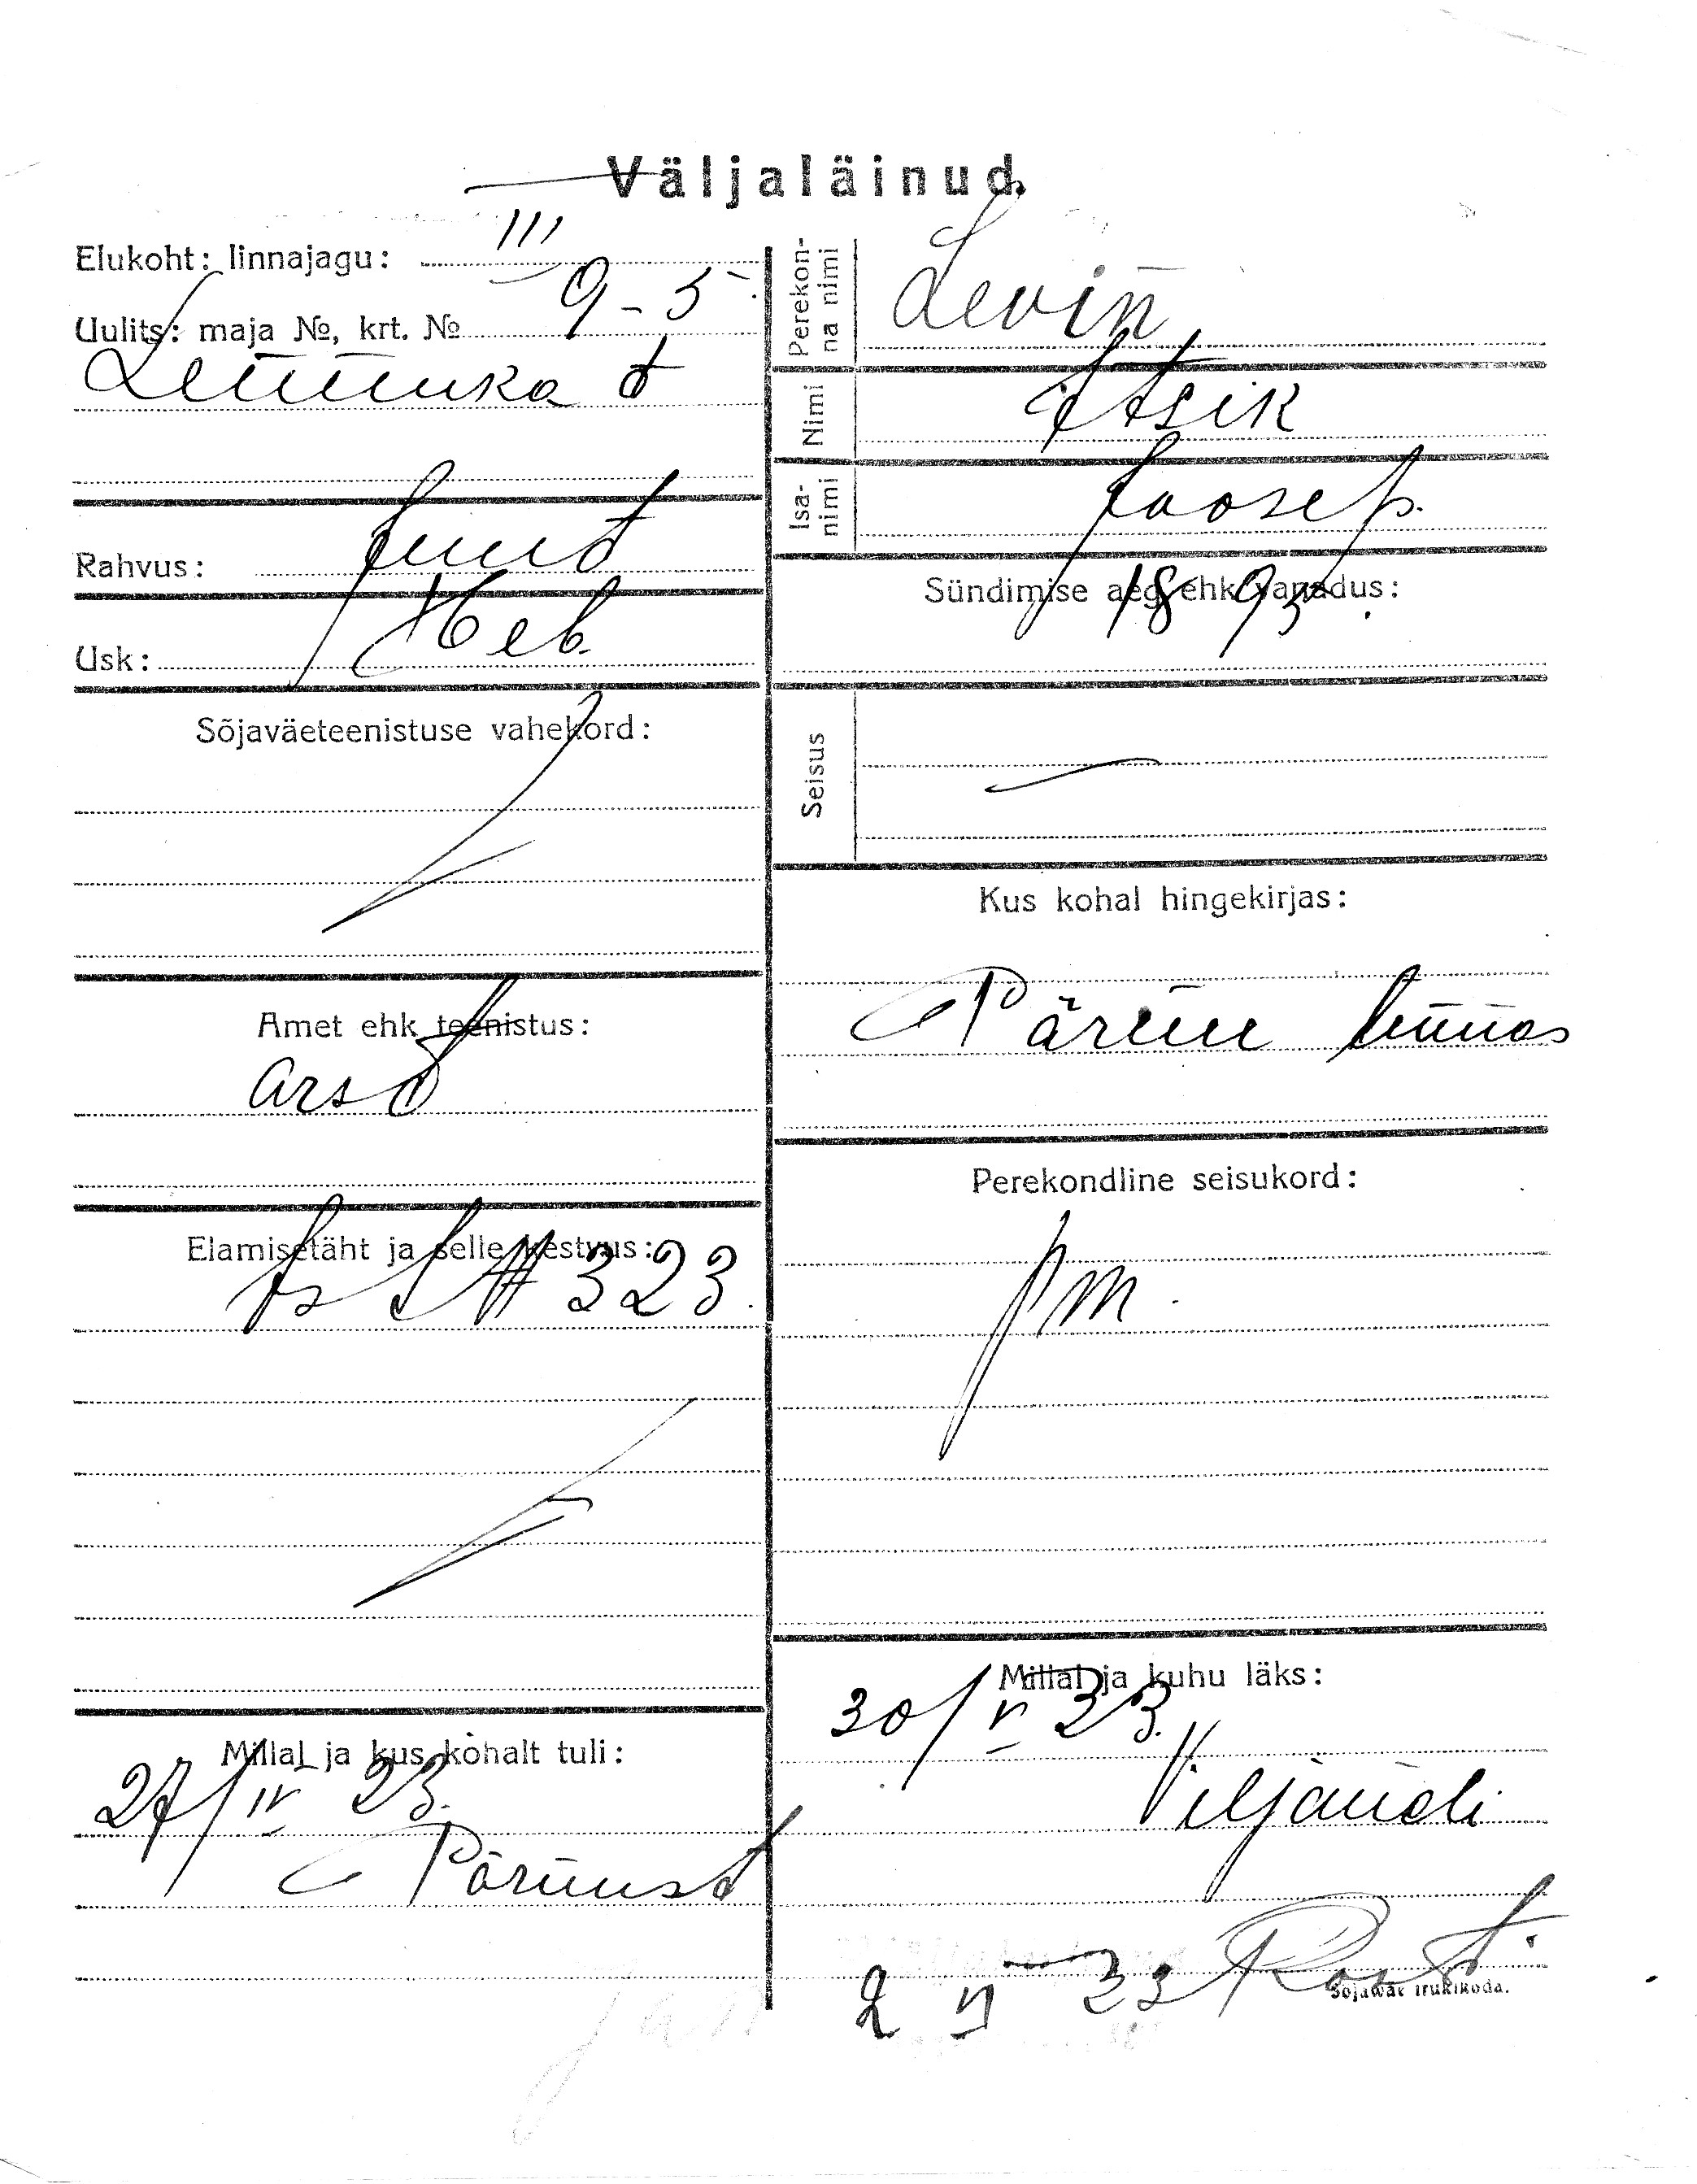 Väljaläinud.
Elukoht: linnajagu: III
Uulits: maja №, krt. № 9-5.
Rahvus: Juut
Usk: Heb.
Sõjaväeteenistuse vahekord:
Amet ehk teenistus:
Arst
Elamisetäht ja selle kestvus:
№ 323.
Millal ja kus kohalt tuli:
27/IV 23.
Pärnust
Perekonna nimi Levin
Nimi Itsik
Isanimi Joosep.
Sündimise aeg ehk vanadus:
1895.
Seisus
Kus kohal hingekirjas:
Pärnu linnas
Perekondline seisukord:
Millal ja kuhu läks:
30/V 23.
Viljandi
2 VI 23
Sõjawäe trükikoda.